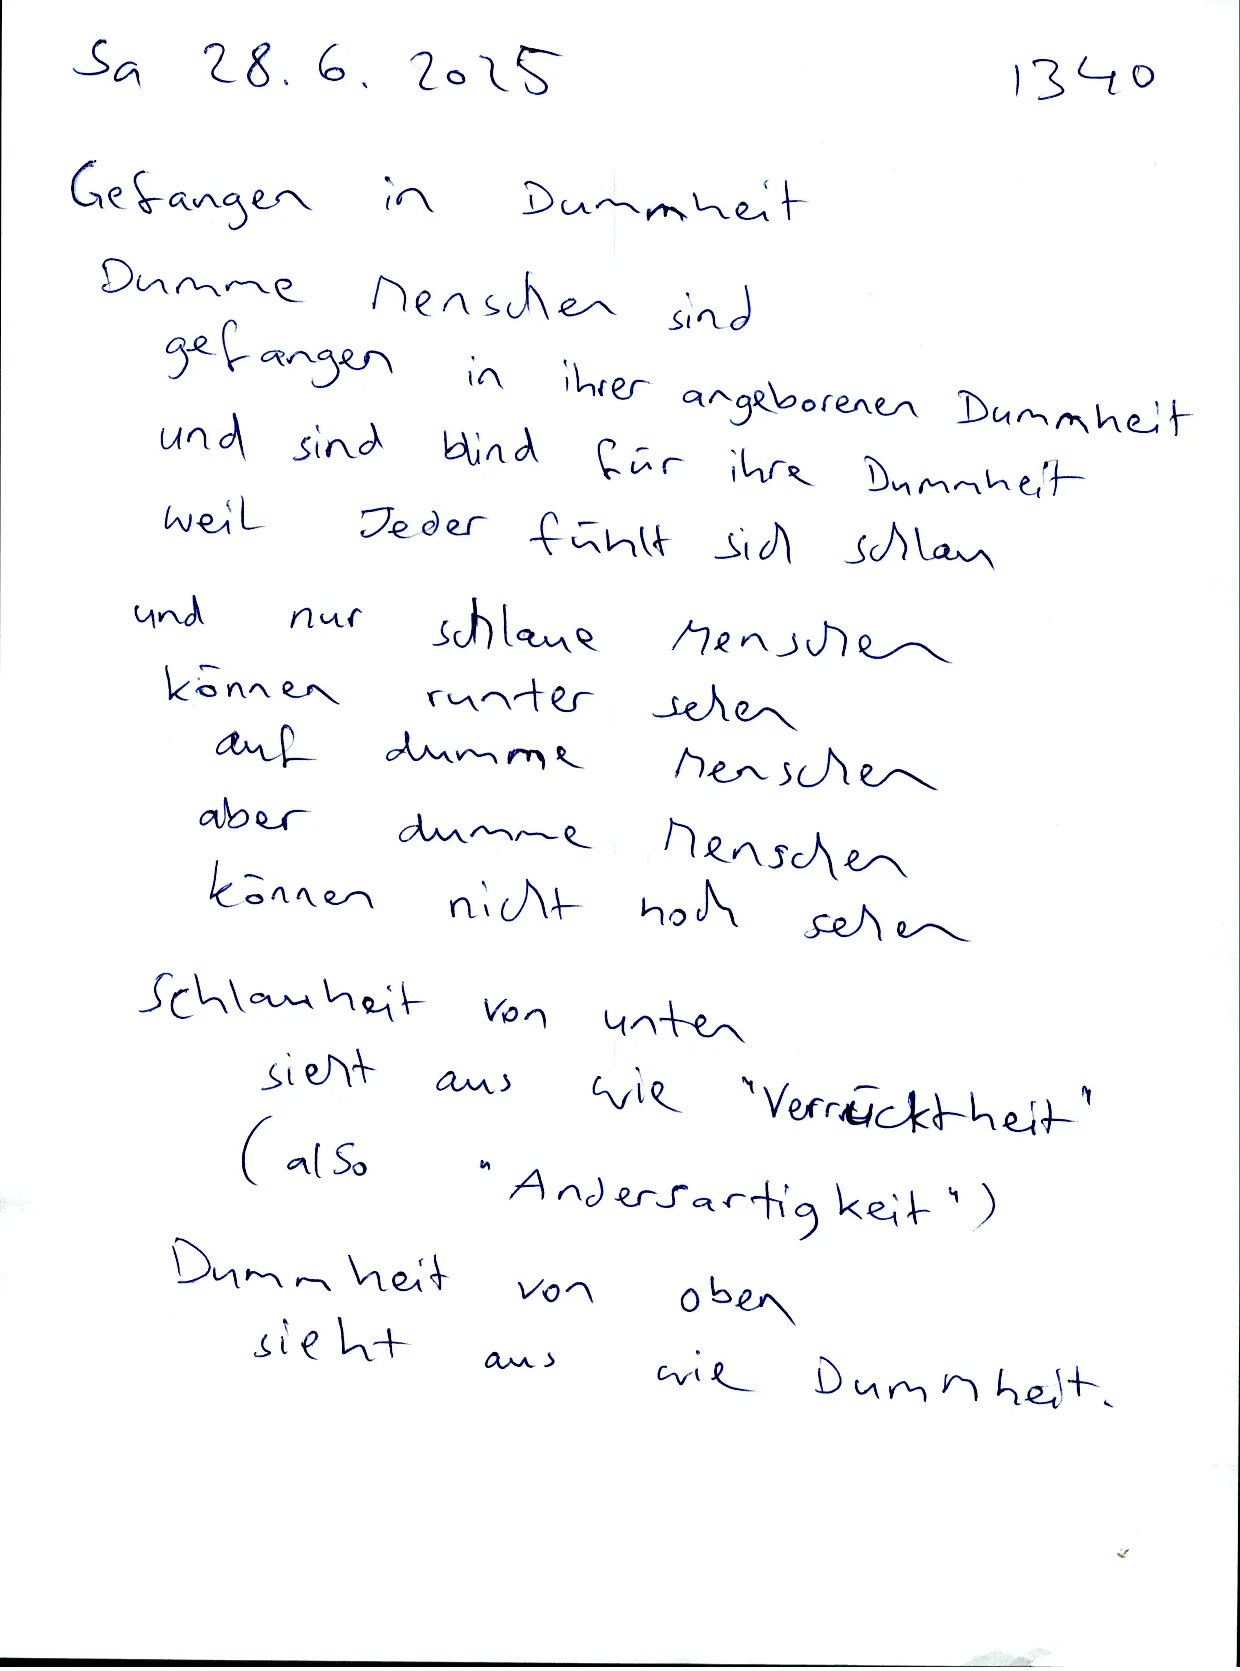 Sa 28.6.2025 1340
Gefangen in Dummheit
Dumme Menschen sind
gefangen in ihrer angeborenen Dummheit
und sind blind für ihre Dummheit
weil Jeder fühlt sich schlau
und nur schlaue Menschen
können runter sehen
auf dumme Menschen
aber dumme Menschen
können nicht hoch sehen
Schlauheit von unten
sieht aus wie "Verrücktheit"
(also "Andersartigkeit")
Dummheit von oben
sieht aus wie Dummheit.